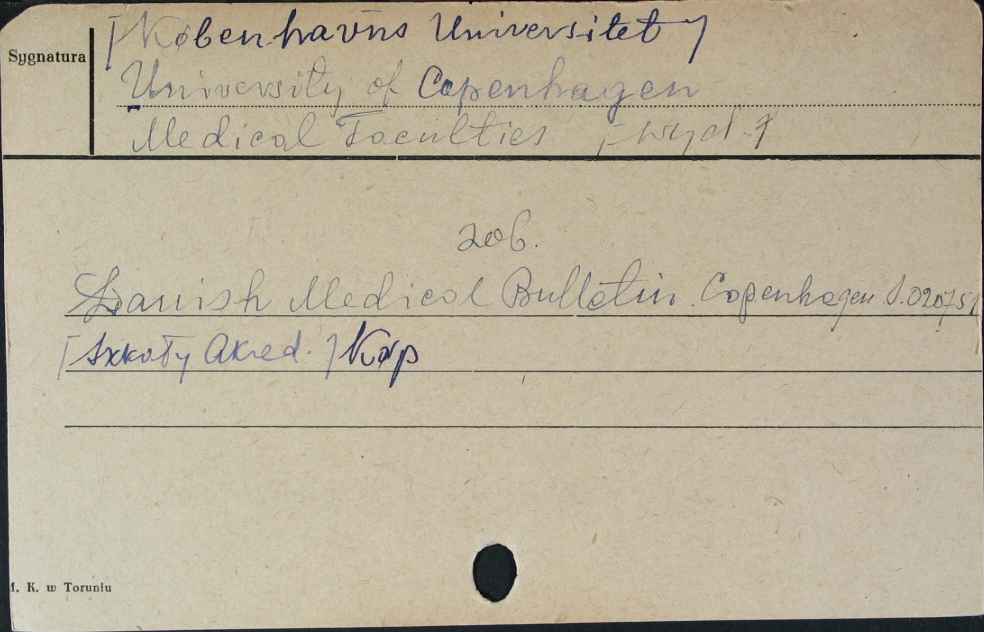 [Københavns Universitet]
Sygnatura
University of Copenhagen
Medical Faculties, - wyd.7
zob.
Danish Medical Bulletin. Copenhagen S.02575/
[Szkoły Akad.] Kop
U. K. w Toruniu